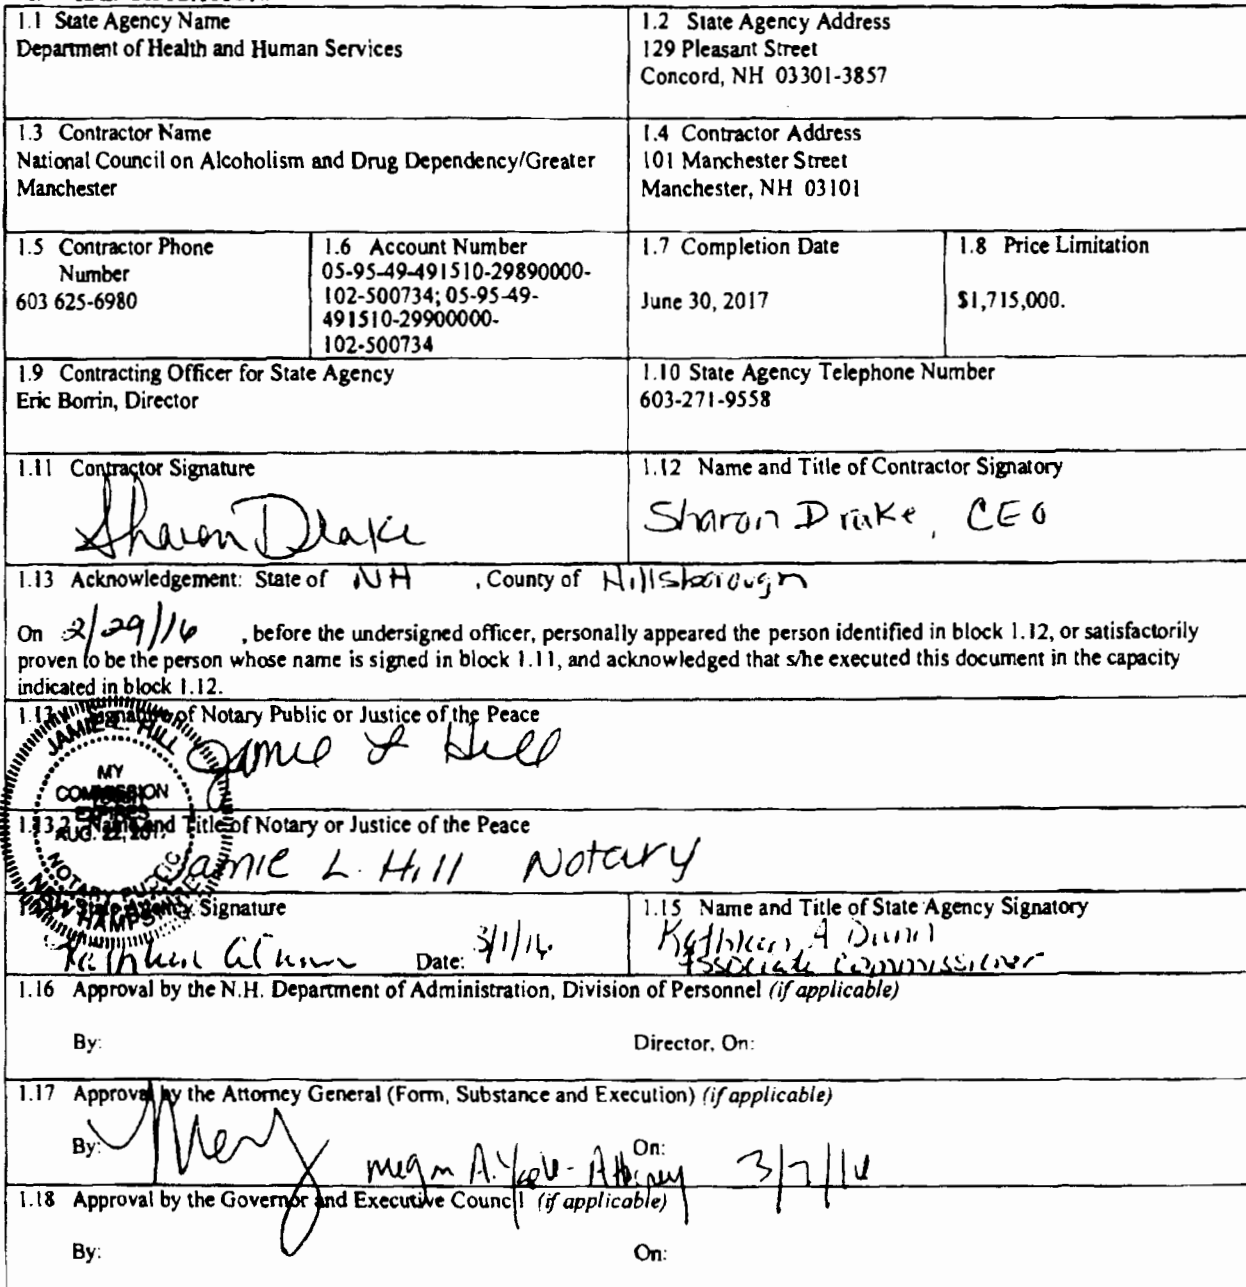 1.1 State Agency Name
Department of Health and Human Services
1.2 State Agency Address
129 Pleasant Street
Concord, NH 03301-3857
1.3 Contractor Name
National Council on Alcoholism and Drug Dependency/Greater
Manchester
1.4 Contractor Address
101 Manchester Street
Manchester, NH 03101
1.5 Contractor Phone
Number
603 625-6980
1.6 Account Number
05-95-49-491510-29890000-
102-500734; 05-95-49-
491510-29900000-
102-500734
1.7 Completion Date
June 30, 2017
1.8 Price Limitation
$1,715,000.
1.9 Contracting Officer for State Agency
Eric Borrin, Director
1.10 State Agency Telephone Number
603-271-9558
1.11 Contractor Signature
Sharon Drake
1.12 Name and Title of Contractor Signatory
Sharon Drake, CEO
1.13 Acknowledgement: State of NH , County of Hillsborough
On 2/29/16 , before the undersigned officer, personally appeared the person identified in block 1.12, or satisfactorily
proven to be the person whose name is signed in block 1.11, and acknowledged that s/he executed this document in the capacity
indicated in block 1.12.
Signature of Notary Public or Justice of the Peace
Jamie L Hill
JAMIE L. HILL
MY
COMMISSION
EXPIRES
AUG. 22, 2017
NOTARY PUBLIC
NEW HAMPSHIRE
1.13.2 Name and Title of Notary or Justice of the Peace
Jamie L. Hill Notary
State Agency Signature
Date: 3/1/16
1.15 Name and Title of State Agency Signatory
Kathleen A Dunn
Associate Commissioner
1.16 Approval by the N.H. Department of Administration, Division of Personnel (if applicable)
By:
Director, On:
1.17 Approval by the Attorney General (Form, Substance and Execution) (if applicable)
By:
On:
Megan A. - Attorney 3/7/16
1.18 Approval by the Governor and Executive Council (if applicable)
By:
On: